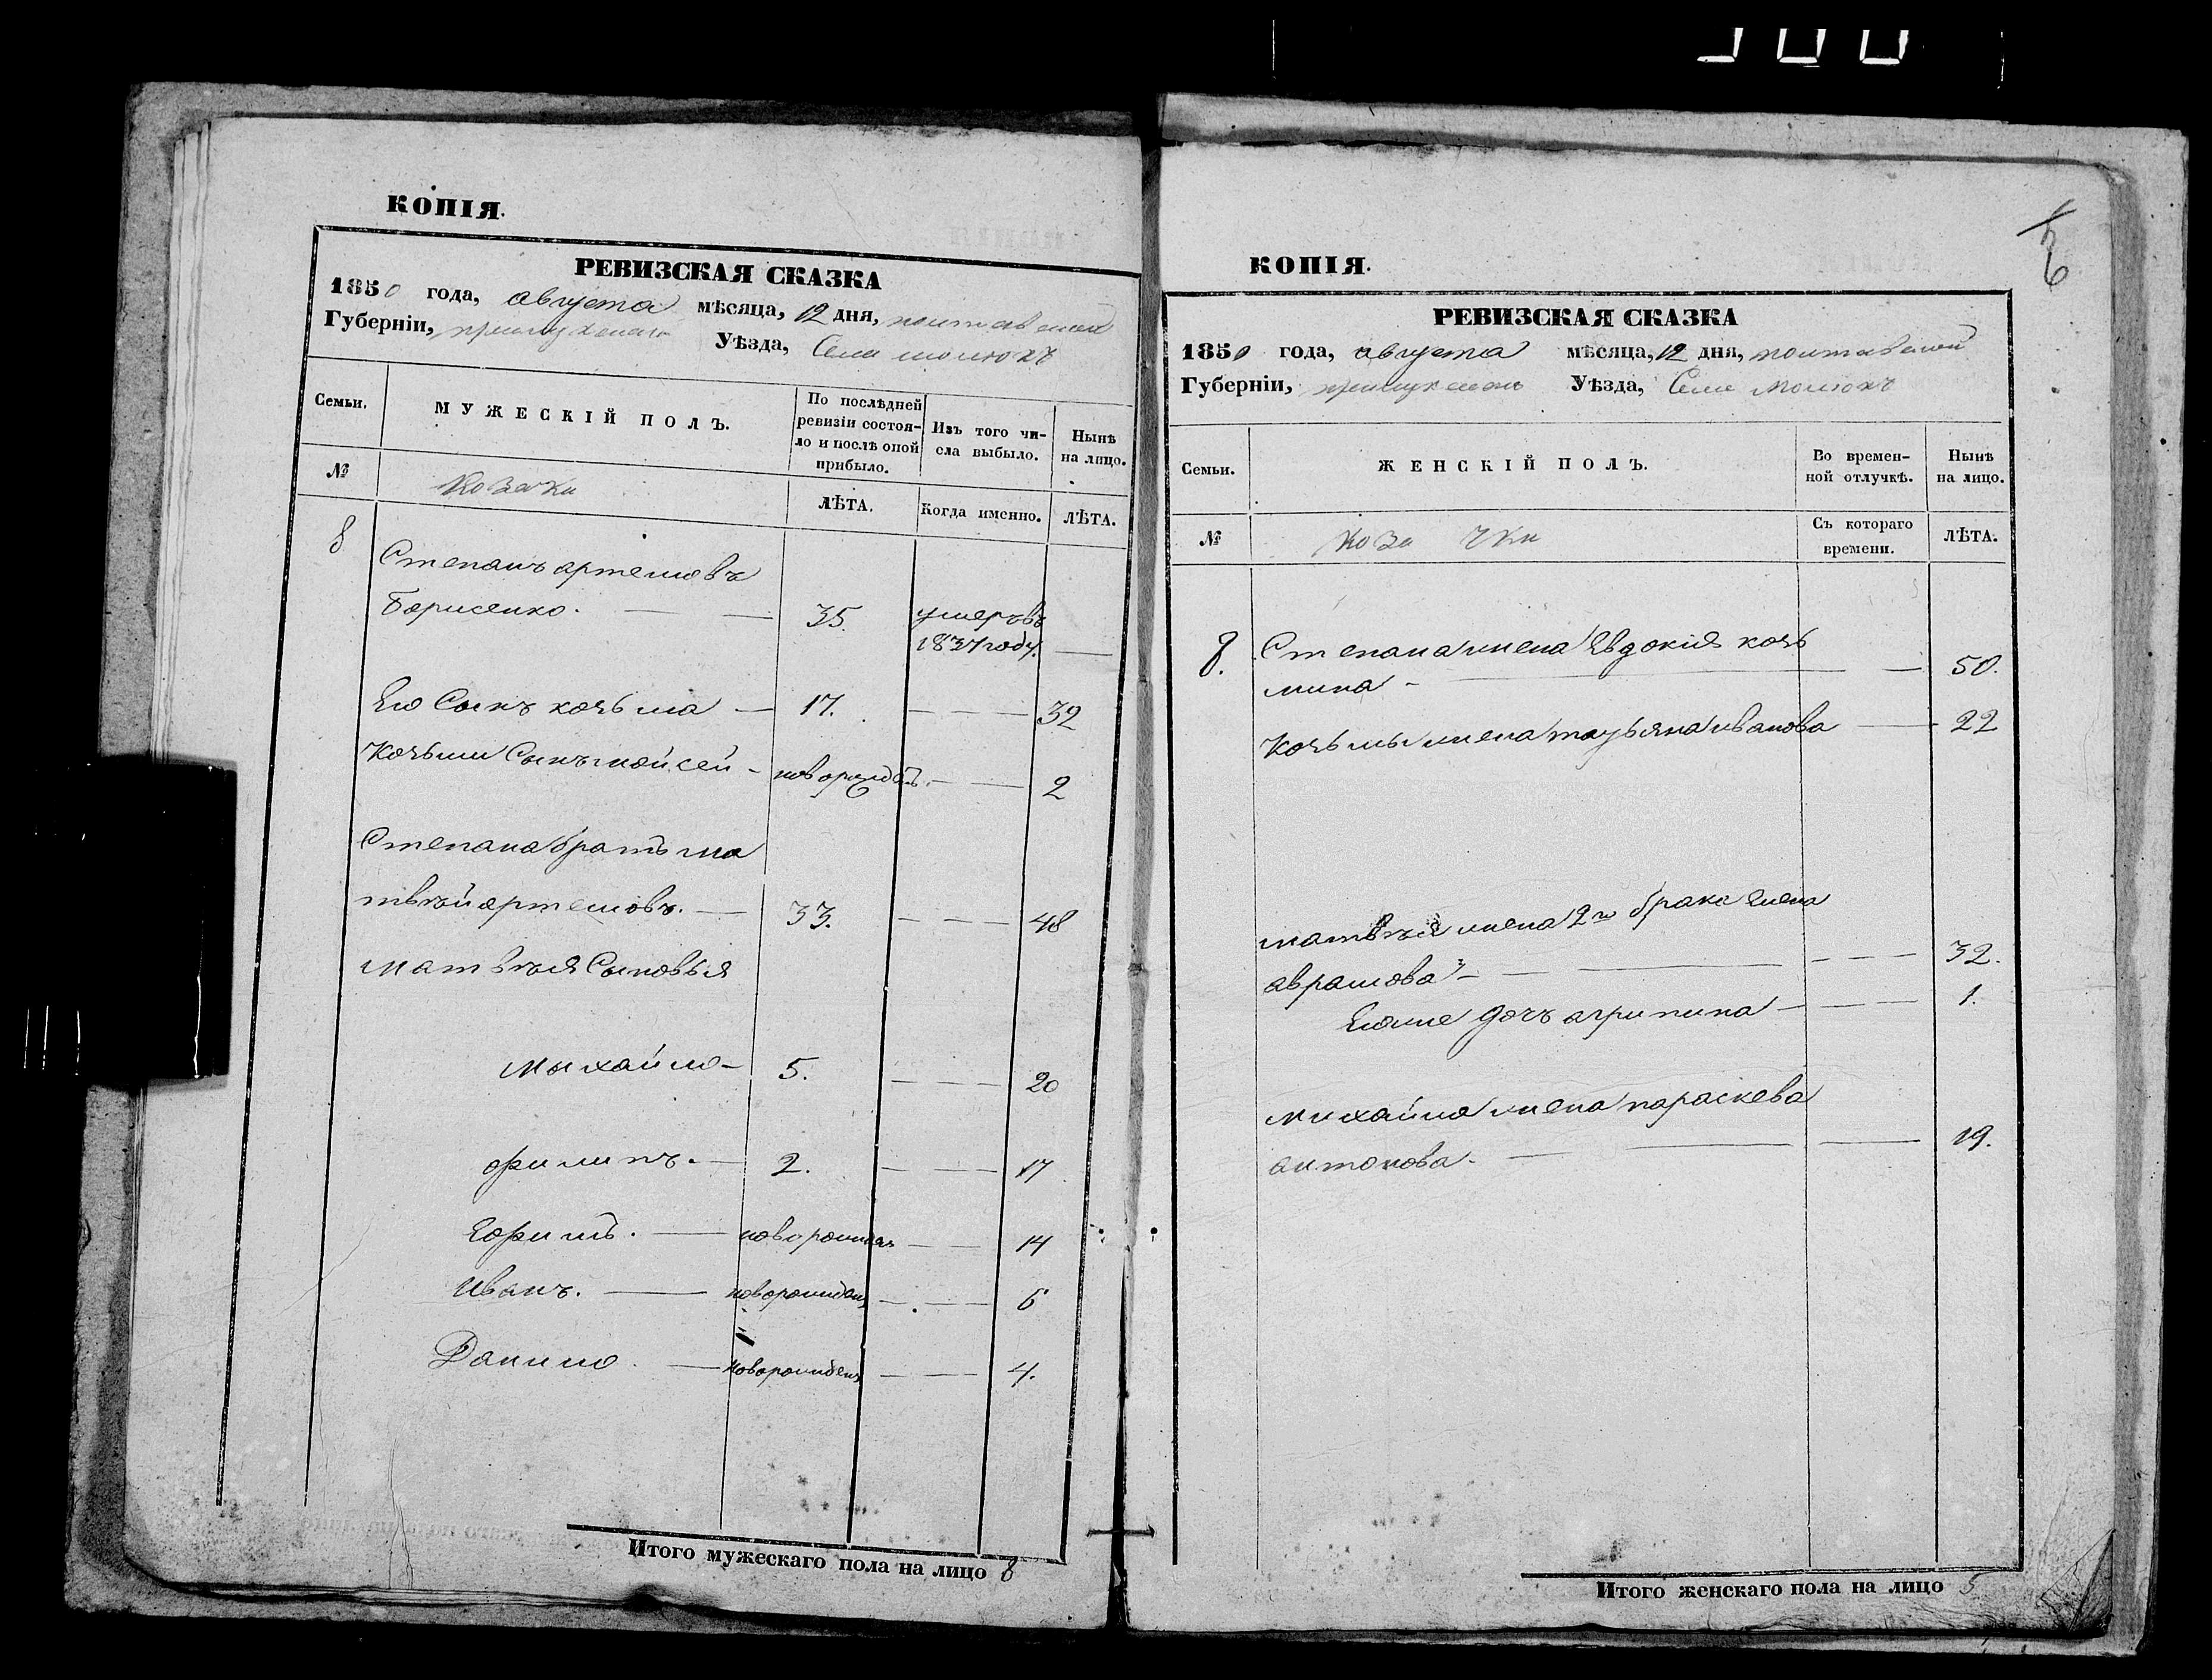 КОПІЯ.
РЕВИЗСКАЯ СКАЗКА
1850 года, августа мѣсяца, 12 дня, полтавской
Губерніи, прилукскаго Уѣзда, Села
Семьи.
МУЖЕСКІЙ ПОЛЪ.
По послѣдней ревизіи состояло и послѣ оной прибыло.
Изъ того числа выбыло.
Нынѣ на лицо.
№
Козаки
ЛѢТА.
Когда именно.
ЛѢТА.
8 Степанъ артемовъ
Борисенко. — — 35. умеръ въ
1837 году. —
Его Сынъ козьма — 17. — — — 32
Козьми Сынъ мойсей - новорожден. — — 2
Степана братъ ма
твѣй артемовъ. — 33. — — — 48
матвѣя Сыновья
Михайло — 5. — — — 20
филипъ. — 2. — — — 17
Ефимъ. — новорожден — — 14
Иванъ. — новорожден — — 6
Данило. — новорожденъ — — 4.
Итого мужескаго пола на лицо 8
КОПІЯ.
РЕВИЗСКАЯ СКАЗКА
1850 года, августа мѣсяца, 12 дня, полтавской
Губерніи, прилукскаго Уѣзда, Села
Семьи.
ЖЕНСКІЙ ПОЛЪ.
Во временной отлучкѣ.
Нынѣ на лицо.
№
Коза чки
Съ котораго времени.
ЛѢТА.
8. Степана жена Евдокия козь
мина — — — 50.
Козьмы жена татьяна иванова — 22
матвѣя жена 2го брака Елена
аврамова — — — — 32.
Еяже дочъ агрипина — — — 1.
михайла жена параскева
антонова. — — — 19.
Итого женскаго пола на лицо 5